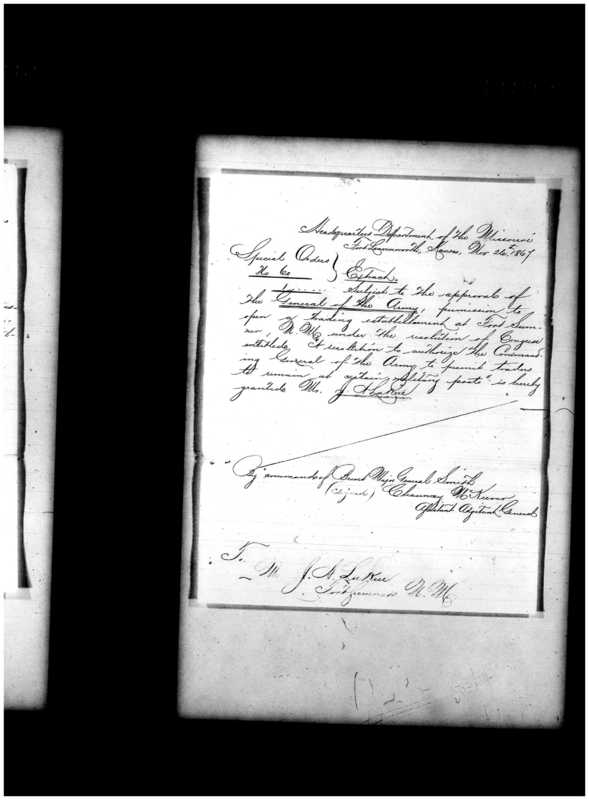 Headquarters Department of the Missouri
Fort Leavenworth, Kansas, Nov 26th 1867
Special Orders
No
Extract.
1....... Subject to the approval of
the General of the Army, permission to
open a trading establishment at Fort Sum-
ner, N. M. under the resolution of Congress
entitled "A resolution to authorize the Command-
ing General of the Army to permit traders
to remain at certain military posts" is hereby
granted Mr. J
By command of Brevet Major General Smith
(Signed) Chauncey McKeever
Assistant Adjutant General
To
Mr J. A.
Fort Sumner N. M.